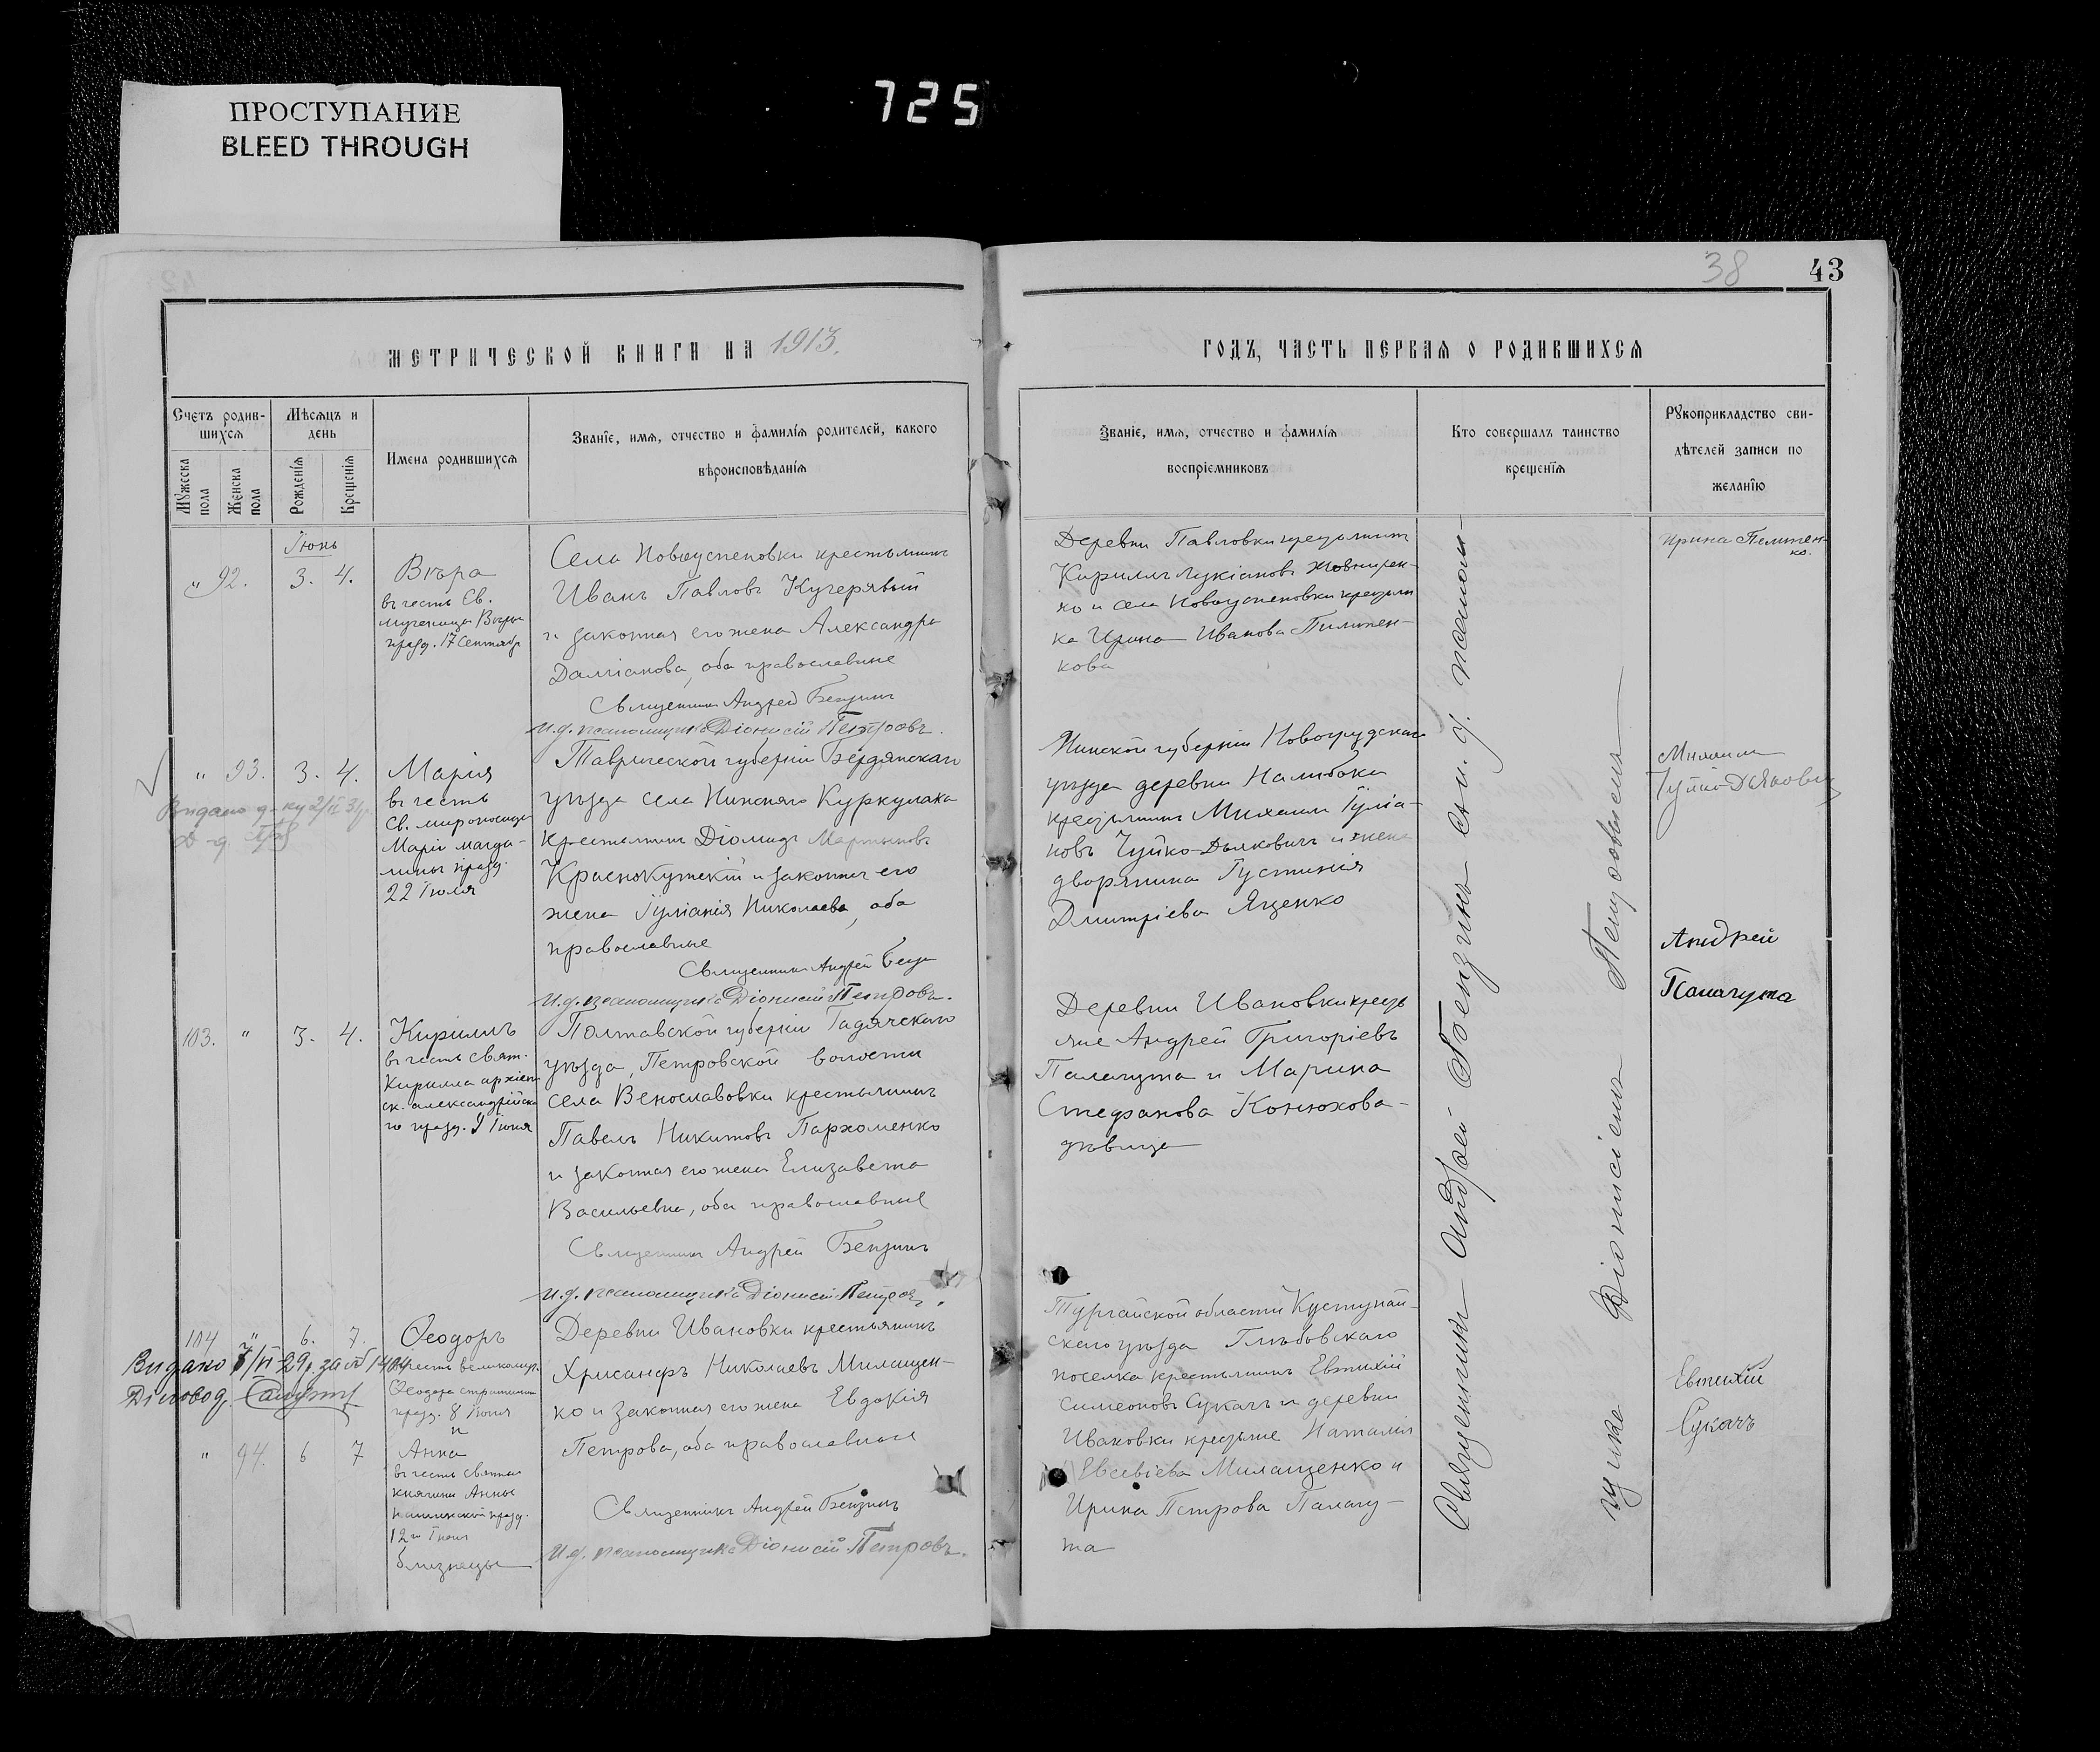 ПРОСТУПАНИЕ
BLEED THROUGH
725
38
43
МЕТРИЧЕСКОЙ КНИГИ НА 1913.
ГОДЪ, ЧАСТЬ ПЕРВАЯ О РОДИВШИХСЯ
Счетъ родив-
шихся
Мужеска пола
Женска пола
Мѣсяцъ и день
Рожденія
Крещенія
Имена родившихся
Званіе, имя, отчество и фамилія родителей, какого
вѣроисповѣданія
Званіе, имя, отчество и фамилія
воспріемниковъ
Кто совершалъ таинство
крещенія
Рукоприкладство сви-
дѣтелей записи по
желанію
Іюнь
" 92. 3. 4.
Вѣра
въ честь Св.
мученицы Вѣры
празд. 17 Сентябр
Села Новоуспеновки крестьянинъ
Иванъ Павловъ Кучерявый
и законная его жена Александра
Даміанова, оба православные
Священникъ Андрей Бензинъ
И.д. псаломщика Діонисій Петровъ.
Деревни Павловки крестьянинъ
Кириллъ Лукіановъ
ко и села Новоуспеновки крестьян
ка Ирина Иванова
кова
Ирина
ко.
" 93. 3. 4.
Марія
въ честь
Св. мироносицы
Маріи Магда-
лины празд.
22 Іюля
Таврической губерніи Бердянскаго
уѣзда села Нижняго Куркулака
крестьянинъ Діомидъ Мартыновъ
Краснокутскій и законная его
жена Іуліанія Николаева, оба
православные
Священникъ Андрей Бенз
И.д. псаломщика Діонисій Петровъ.
Минской губерніи Новогрудскаго
уѣзда деревни Налибоки
крестьянинъ Михаилъ Іуліа-
новъ Чуйко-Дьяковичъ и жена
дворянина Іустинія
Дмитріева Яценко
Михаилъ
Чуйко-Дьяковичъ
103. " 3. 4.
Кириллъ
въ честь свят.
Кирилла архіеп
ск. александрійска
го празд. 9 Іюня
Полтавской губерніи Гадячскаго
уѣзда, Петровской волости
села Венославовки крестьянинъ
Павелъ Никитовъ Пархоменко
и законная его жена Елизавета
Васильевна, оба православные
Священникъ Андрей Бензинъ
И.д. псаломщика Діонисій Петровъ.
Деревни Ивановки крестья
яне Андрей Григоріевъ
Палагута и Марина
Стефанова Конюхова-
дѣвица
Андрей
Палагута
104 " 6. 7.
Ѳеодоръ
въ честь великомуч.
Ѳеодора стратилата
празд. 8 Іюня
и
Видано
Діловод.
" 94. 6 7
Анна
въ честь святыя
княгини Анны
Кашинской празд.
12го Іюня
близнецы
Деревни Ивановки крестьянинъ
Хрисанфъ Николаевъ Милащен-
ко и законная его жена Евдокія
Петрова, оба православные
Священникъ Андрей Бензинъ
И.д. псаломщика Діонисій Петровъ.
Тургайской области Кустунай-
скаго уѣзда Глѣбовскаго
поселка крестьянинъ Евтихій
Симеоновъ Сукачъ и деревни
Ивановки крестьяне Наталія
Евсевіева Милащенко и
Ирина Петрова Палагу-
та
Евтихій
Сукачъ
Священникъ Андрей Бензинъ съ и. д. псалом-
щика Діонисіемъ Петровымъ